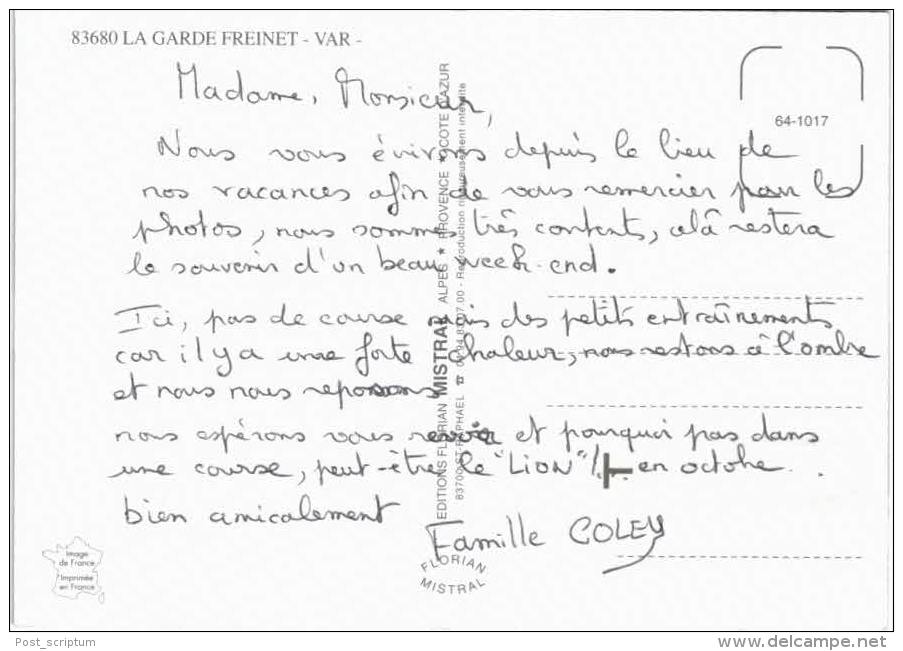 83680 LA GARDE FREINET - VAR -
64-1017
Madame, Monsieur,
Nous vous écrivons depuis le lieu de
nos vacances afin de vous remercier pour les
photos, nous sommes très contents, celà restera
le souvenir d'un beau week-end.
Ici, pas de course mais des petits entraînements
car il y a une forte chaleur, nous restons à l'ombre
et nous nous reposons
nous espérons vous revoir et pourquoi pas dans
une course, peut-être le "LION" en octobre.
bien amicalement
Famille COLEY
EDITIONS FLORIAN MISTRAL ALPES ★ PROVENCE ★ COTE D'AZUR
83700 ST-RAPHAEL ☎ Reproduction rigoureusement interdite
Image
de France
Imprimée
en France
FLORIAN
MISTRAL
Post_scriptum
www.delcampe.net